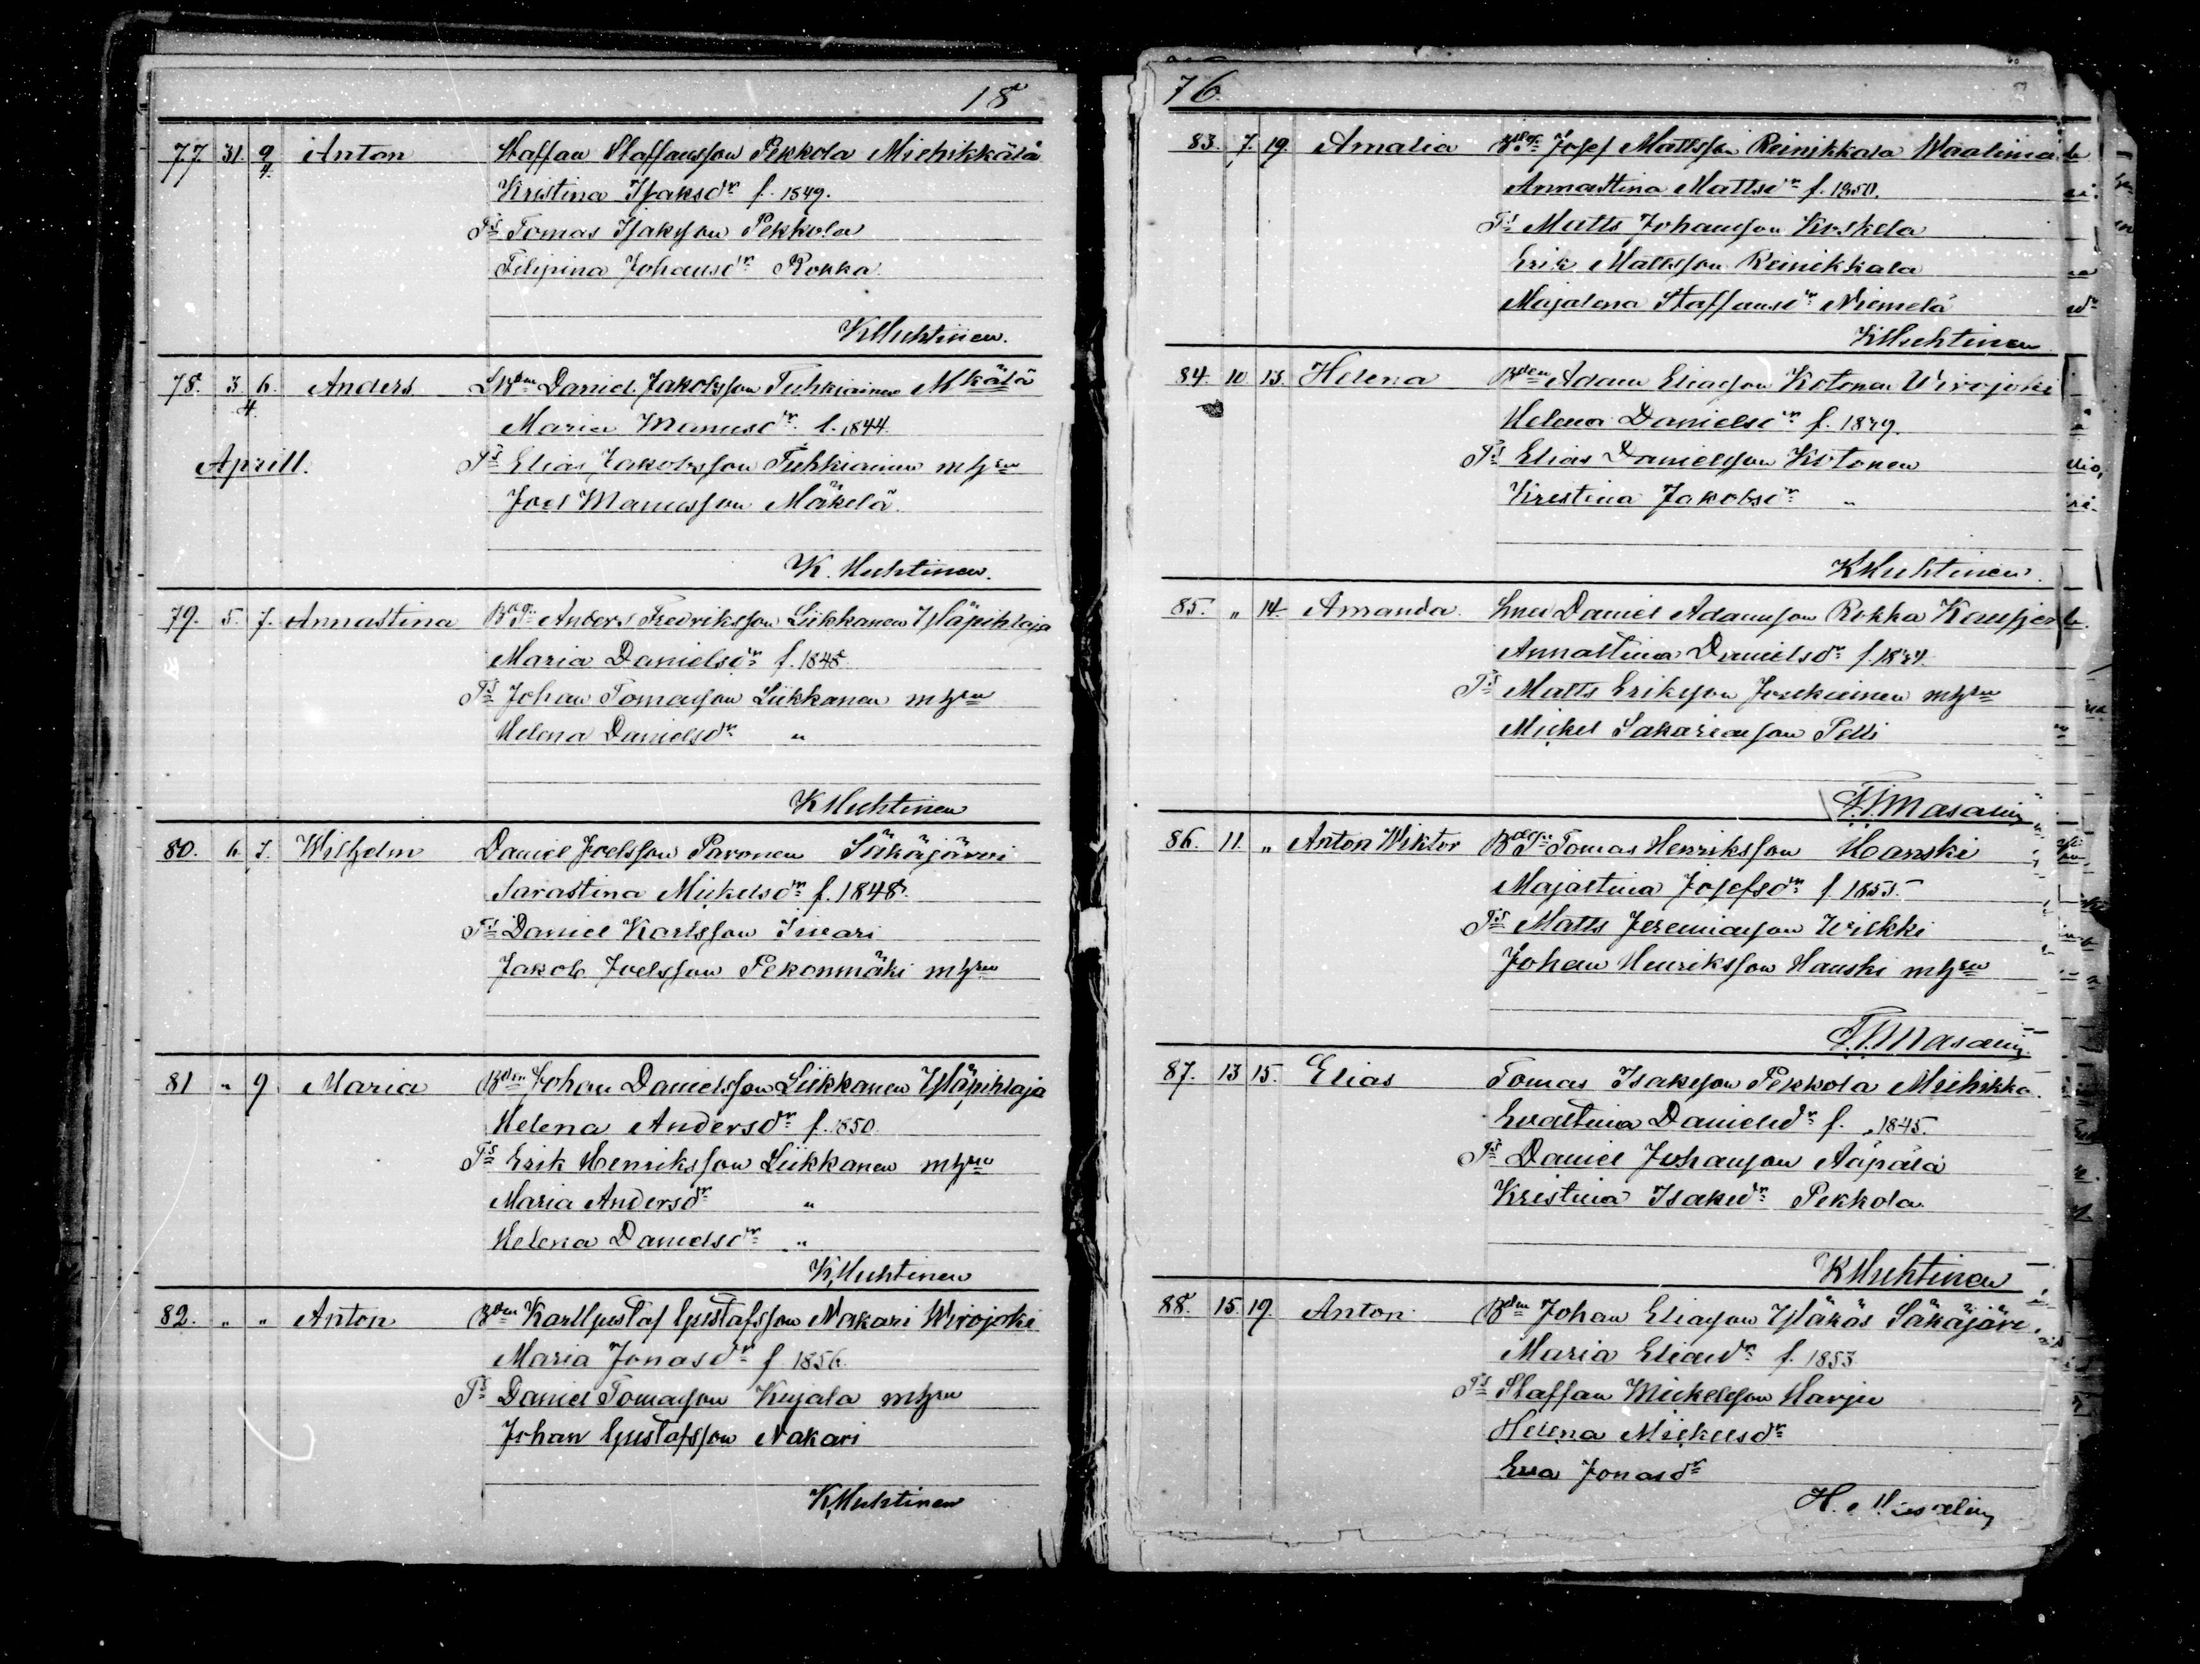 18
77. 31. 9/4. Anton Staffan Staffansson Pekkola Miehikkälä
Kristina Isaksdr f. 1849.
Ts Tomas Isaksson Pekkola
Filipina Johansdr Rokka
KMuhtinen.
78. 3/4 6. Anders Daniel Jakobsson Tuhkiainen Mkälä
Maria Manusdr f. 1844.
Aprill. Ts Elias Jakobsson Tuhkiainen m hru
Joel Manusson Mäkelä.
K. Muhtinen.
79. 5. 7. Annastina Anders Fredriksson Liikkanen Yläpihlaja
Maria Danielsdr f. 1848
Ts Johan Tomasson Liikkanen m hru
Helena Danielsdr "
KMuhtinen
80. 6. 7. Wilhelm Daniel Joelsson Paronen Säkäjärvi
Sarastina Mickelsdr f. 1848.
Ts Daniel Karlsson
Jakob Joelsson Pekonmäki m hru
81 " 9. Maria Bden Johan Danielsson Liikkanen Yläpihlaja
Helena Andersdr f. 1850.
Ts Erik Henriksson Liikkanen m hru
Maria Andersdr "
Helena Danielsdr "
K,Muhtinen
82. " " Anton Bden Karl Gustaf Gustafsson Nakari Wirojoki
Maria Jonasdr f. 1856.
Ts Daniel Tomasson Kujala m hru
Johan Gustafsson Nakari
K,Muhtinen
76.
83. 7. 19. Amalia Josef Mattsson Reinikkala Waalima
Annastina Mattsdr f. 1850.
Ts Matts Johansson Koskela
Erik Mattsson Reinikkala
Majalena Staffansdr Niemelä
KMuhtinen
84. 10 15. Helena Bden Adam Eliasson Kotonen Wirojoki
Helena Danielsdr f. 1849.
Ts Elias Danielsson Kotonen
Kristina Jakobsdr "
KMuhtinen.
85. " 14. Amanda Daniel Adamsson Rokka
Annastina Danielsdr
Ts Matts Eriksson m hru
Mickel Sakariasson Pelli
86. 11. " Anton Wiktor Tomas Henriksson Hanski
Majastina Josefsdr f. 1855.
Ts Matts Jeremiasson Wilkki
Johan Henriksson Hanski m hru
87. 13 15. Elias Tomas Isaksson Pekkola Miehikka
Evastina Danielsdr f. 1845.
Ts Daniel Johansson Aäpälä
Kristina Isaksdr Pekkola
KMuhtinen
88. 15. 19. Anton Bden Johan Eliasson Yläkäs Säkäjärv
Maria Eliasdr f. 1853
Ts Staffan Mickelsson Harju
Helena Mickelsdr
Eva Jonasdr